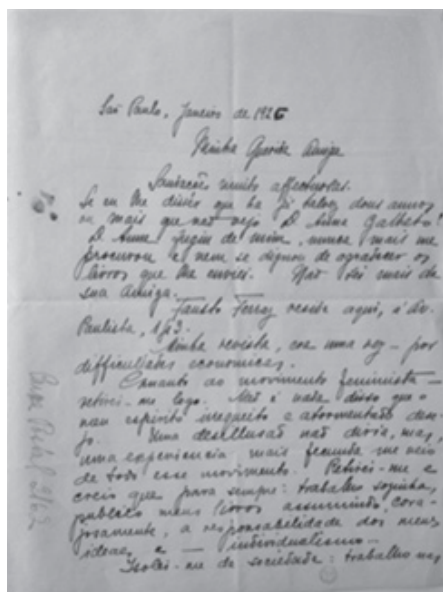 São Paulo, Janeiro de 1926
Minha Querida Amiga
Saudações muito affectuosas.
Se eu lhe disser que ha já talvez dous annos
ou mais que não vejo D. Anna
D. Anna fugiu de mim, nunca mais me
procurou e nem se dignou de agradecer os
livros que lhe enviei. Não sei mais de
sua amiga.
Fausto Ferraz reside aqui, á Av.
Paulista, 
Minha revista, era uma vez – por
difficuldades economicas.
Quanto ao movimento feminista –
retirei-me logo. Não é nada disso que o
meu espirito irrequieto e atormentado dese-
jo. Uma desillusão não diria, mas,
uma experiencia mais fecunda me veio
de todo esse movimento. Retirei-me e
creio que para sempre: trabalho sozinha,
publico meus livros assumindo, cora-
josamente, a responsabilidade dos meus
ideaes, e — individualismo –
Isolei-me da sociedade: trabalho mas,
Caixa Postal 2162